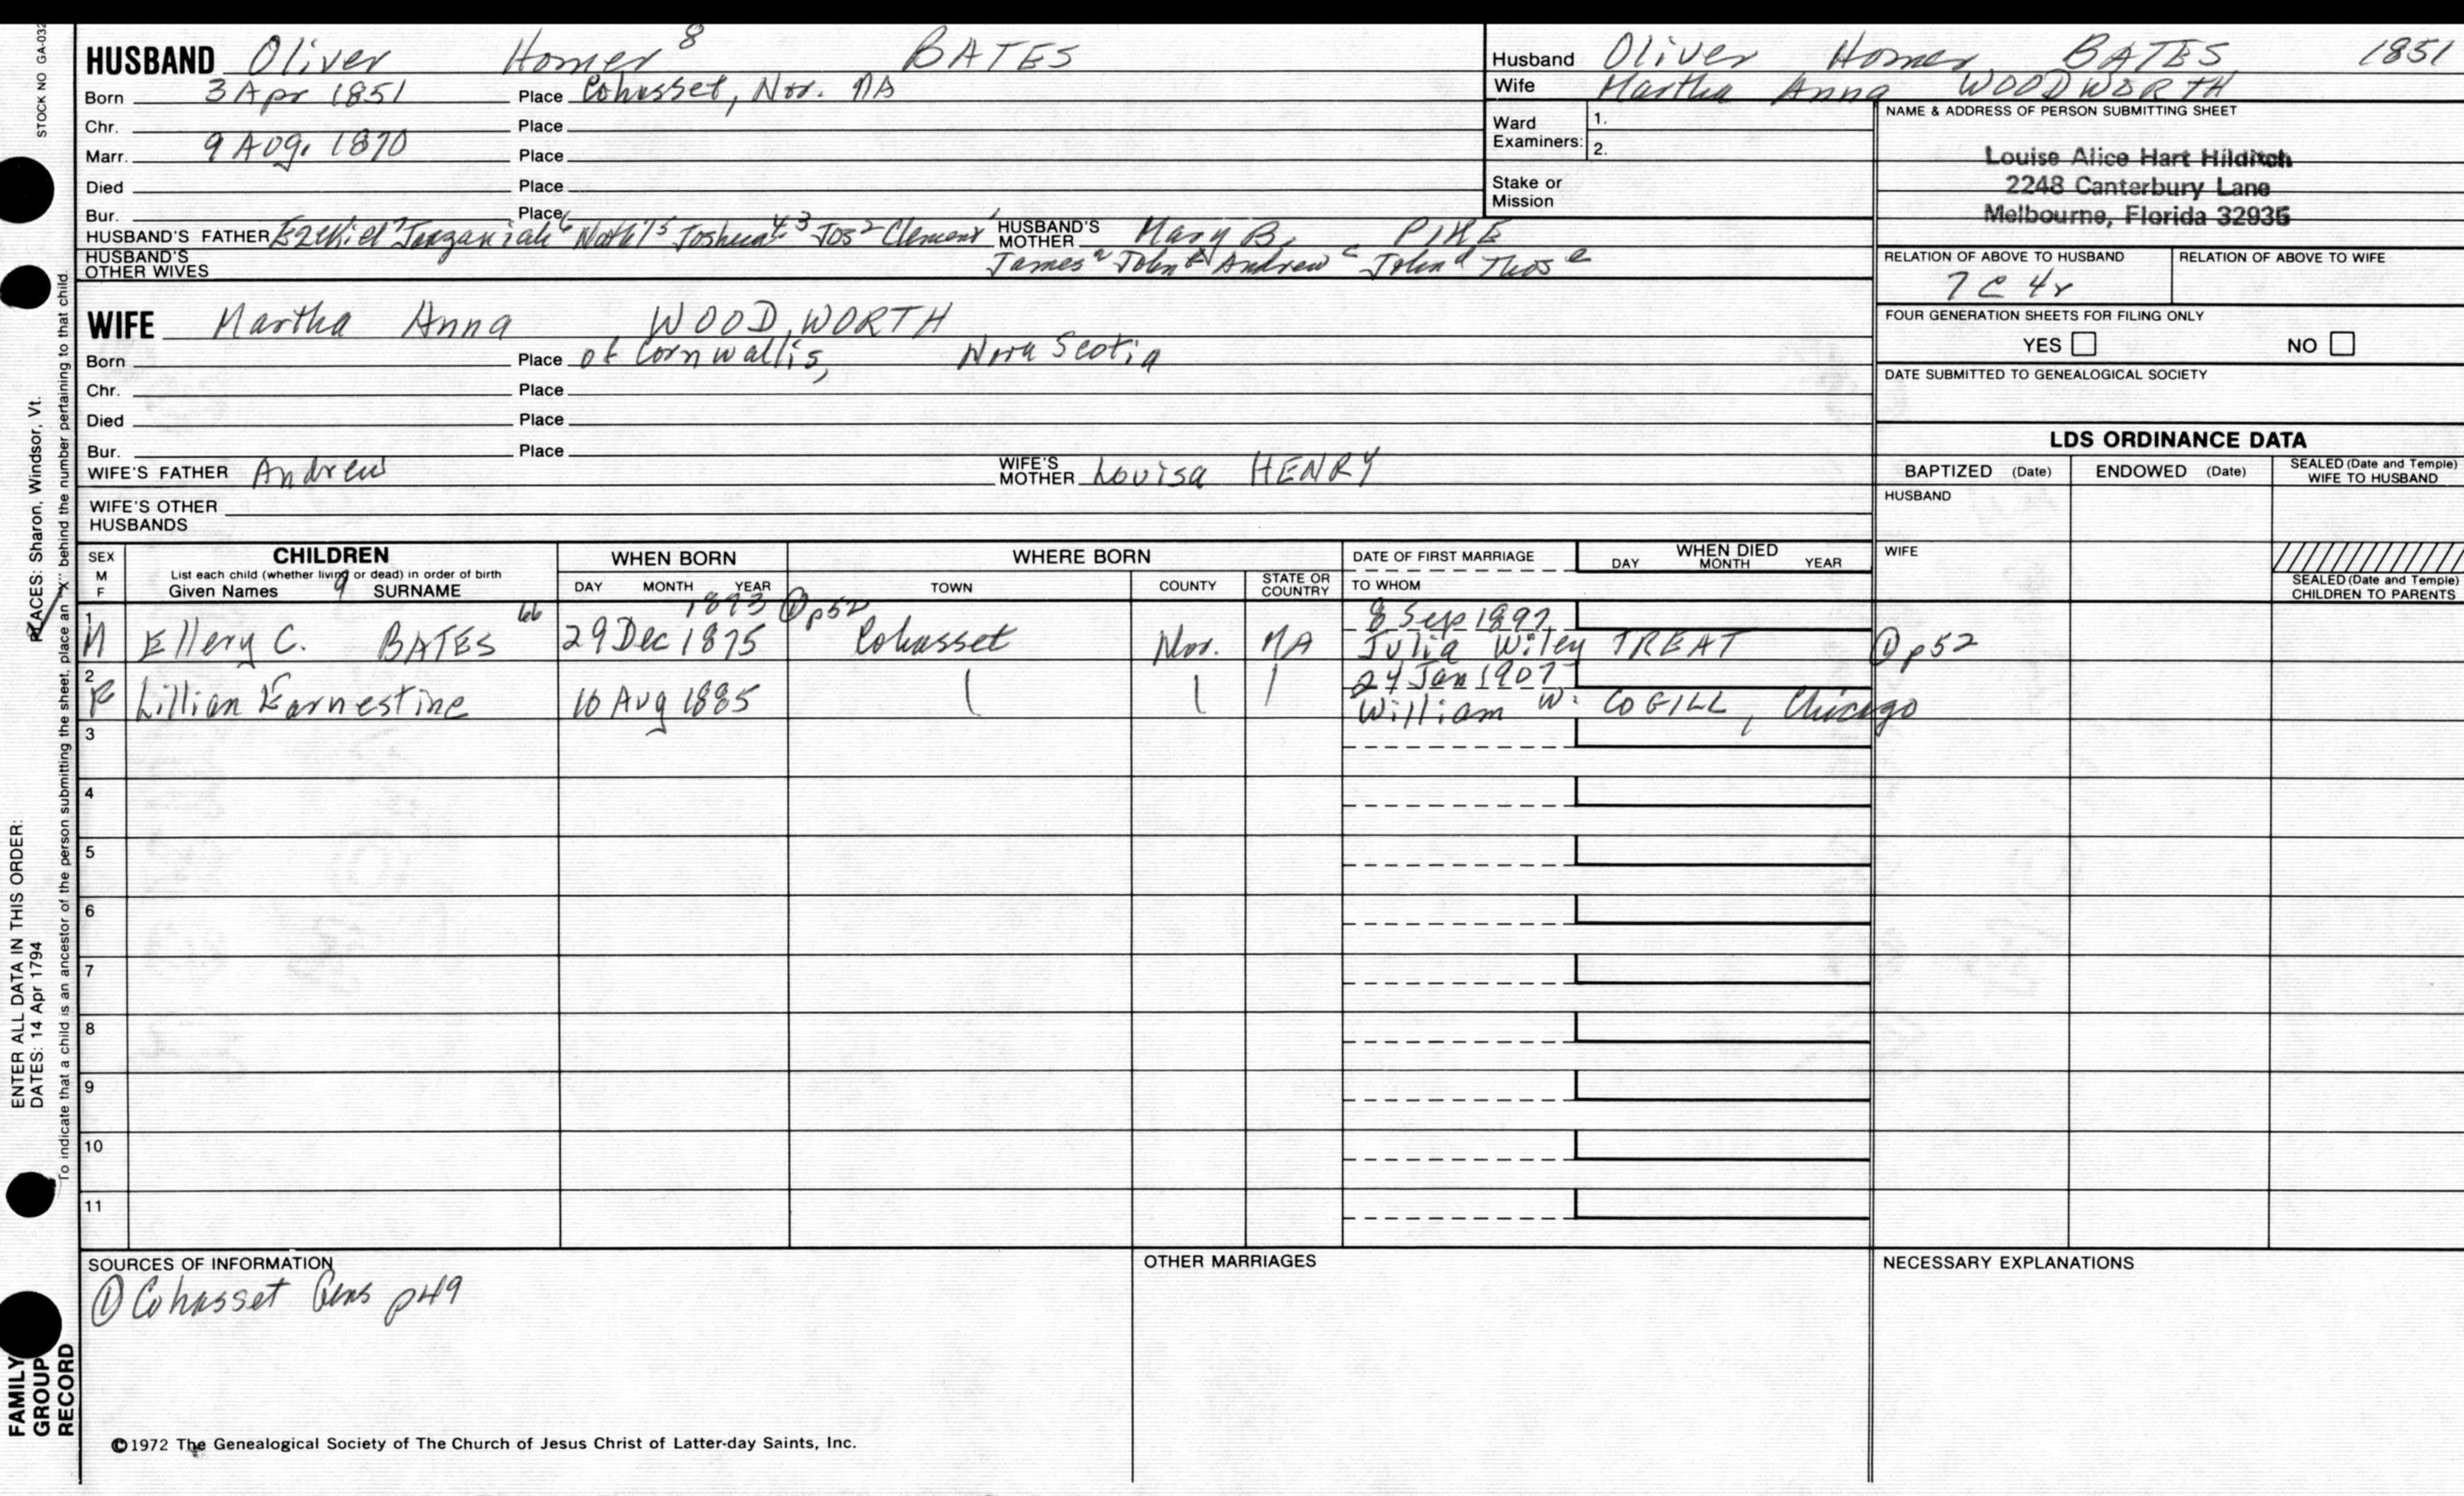 STOCK NO GA-032
HUSBAND Oliver Homer 8 BATES
Born 3 Apr 1851 Place Cohasset, Nor. MA
Chr. Place
Marr. 9 Aug. 1870 Place
Died Place
Bur. Place
HUSBAND'S FATHER Ezekiel 7 Jaazaniah 6 Nath'l 5 Joshua 4 3 Jos 2 Clement 1 HUSBAND'S MOTHER Mary B. PIKE
HUSBAND'S OTHER WIVES James a John b Andrew c John d Thos e
Husband Oliver Homer BATES 1851
Wife Martha Anna WOODWORTH
Ward Examiners: 1.
2.
Stake or Mission
NAME & ADDRESS OF PERSON SUBMITTING SHEET
Louise Alice Hart Hilditch
2248 Canterbury Lane
Melbourne, Florida 32935
RELATION OF ABOVE TO HUSBAND RELATION OF ABOVE TO WIFE
7 C 4r
FOUR GENERATION SHEETS FOR FILING ONLY
YES NO
DATE SUBMITTED TO GENEALOGICAL SOCIETY
WIFE Martha Anna WOODWORTH
Born Place of Cornwallis, Nova Scotia
Chr. Place
Died Place
Bur. Place
WIFE'S FATHER Andrew WIFE'S MOTHER Louisa HENRY
WIFE'S OTHER HUSBANDS
LDS ORDINANCE DATA
BAPTIZED (Date) ENDOWED (Date) SEALED (Date and Temple) WIFE TO HUSBAND
HUSBAND
WIFE
SEALED (Date and Temple) CHILDREN TO PARENTS
SEX M F CHILDREN WHEN BORN WHERE BORN DATE OF FIRST MARRIAGE WHEN DIED
List each child (whether living or dead) in order of birth
Given Names 9 SURNAME DAY MONTH YEAR TOWN COUNTY STATE OR COUNTRY TO WHOM DAY MONTH YEAR
66 1873 ① p52 8 Sep 1897
1 M Ellery C. BATES 29 Dec 1875 Cohasset Nor. MA Julia Wiley TREAT ① p52
24 Jan 1907
2 F Lillian Earnestine 16 Aug 1885 William W. COGILL, Chicago
3
4
5
6
7
8
9
10
11
SOURCES OF INFORMATION OTHER MARRIAGES NECESSARY EXPLANATIONS
① Cohasset Gens p49
©1972 The Genealogical Society of The Church of Jesus Christ of Latter-day Saints, Inc.
ENTER ALL DATA IN THIS ORDER:
DATES: 14 Apr 1794 PLACES: Sharon, Windsor, Vt.
To indicate that a child is an ancestor of the person submitting the sheet, place an "X" behind the number pertaining to that child.
FAMILY GROUP RECORD